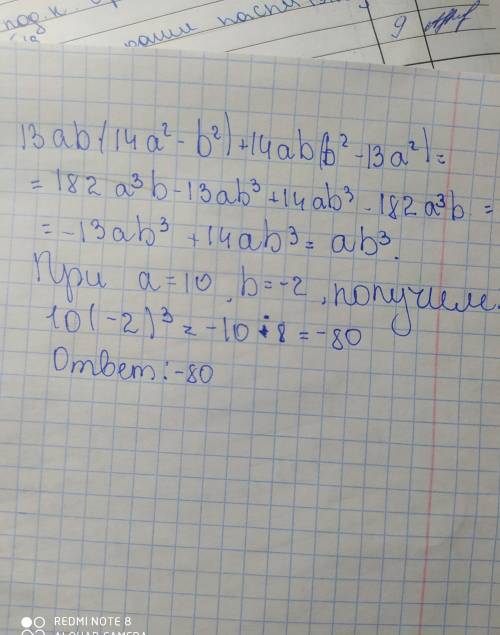 под.к.
9
13ab(14a² - b²)+14ab(b² -13a²)=
= 182a³b-13ab³+14ab³-182a³b =
= -13ab³ +14ab³= ab³.
При a=10, b=-2, получим:
10(-2)³ = -10·8 = -80
Ответ:-80
REDMI NOTE 8
AI QUAD CAMERA